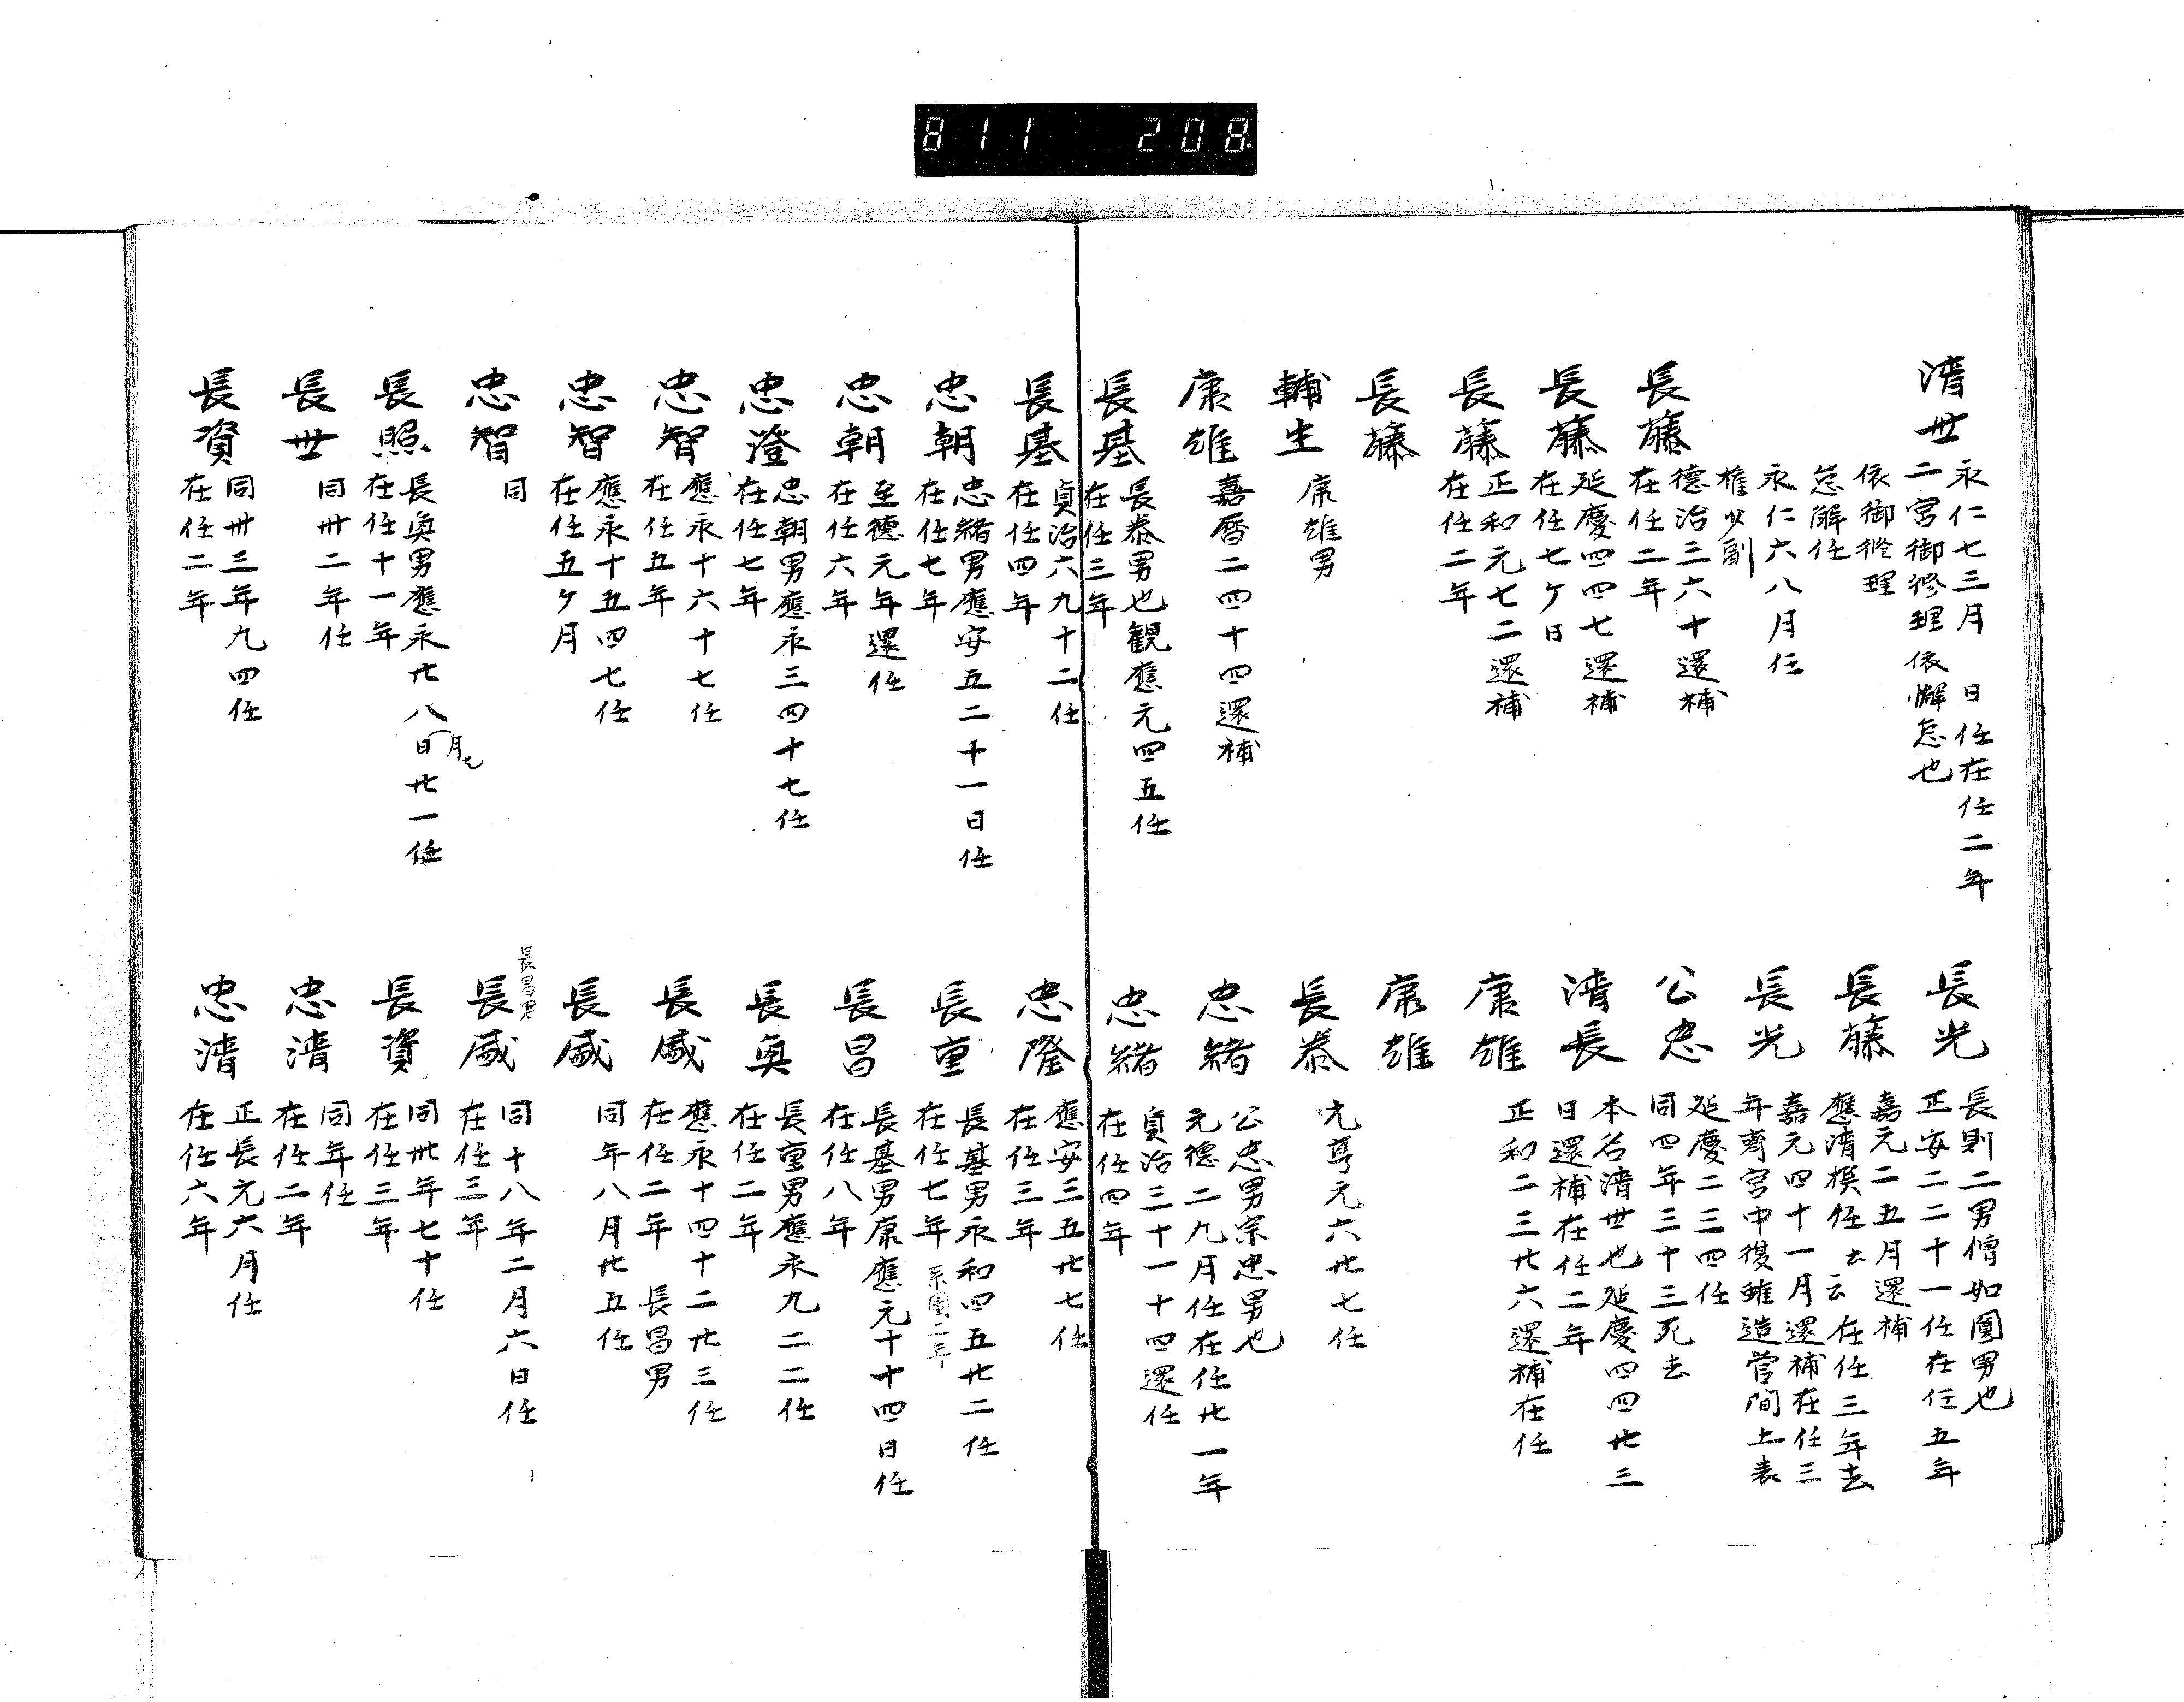 811 208
清世
永仁七三月 日任在任二年
二宮御修理依懈怠也
依御修理
怠解任
永仁六八月任
權少副
長光
長則二男僧如圓男也
正安二二十一任在任五年
長藤
嘉元二五月還補
應清撰任去云在任三年去
長光
嘉元四十一月還補在任三
年齊宮中復雖造營間上表
長藤
德治三六十還補
在任二年
公忠
延慶二三四任
同四年三十三死去
長藤
延慶四四七還補
在任七ケ日
清長
本名清世也延慶四四廿三
日還補在任二年
長藤
正和元七二還補
在任二年
康雄
正和二三廿六還補在任
長藤
康雄
輔生
康雄男
長泰
元亨元六廿七任
康雄
嘉曆二四十四還補
忠緒
公忠男宗忠男也
元德二九月任在任廿一年
長基
長泰男也觀應元四五任
在任三年
忠緒
貞治三十一十四還任
在任四年
長基
貞治六九十二任
在任四年
忠隆
應安三五廿七任
在任三年
忠朝
忠緒男應安五二十一日任
在任七年
長重
長基男永和四五廿二任
在任七年
系圖二年
忠朝
至德元年還任
在任六年
長昌
長基男康應元十十四日任
在任八年
忠澄
忠朝男應永三四十七任
在任七年
長奧
長重男應永九二二任
在任二年
忠智
應永十六十七任
在任五年
長盛
應永十四十二廿三任
在任二年 長昌男
忠智
應永十五四七任
在任五ケ月
長盛
同年八月廿五任
忠智
同
長昌男
長盛
同十八年二月六日任
在任三年
長照
長奧男應永廿八日廿一任
月七
在任十一年
長資
同卅年七十任
在任三年
長世
同卅二年任
忠清
同年任
在任二年
長資
同卅三年九四任
在任二年
忠清
正長元六月任
在任六年